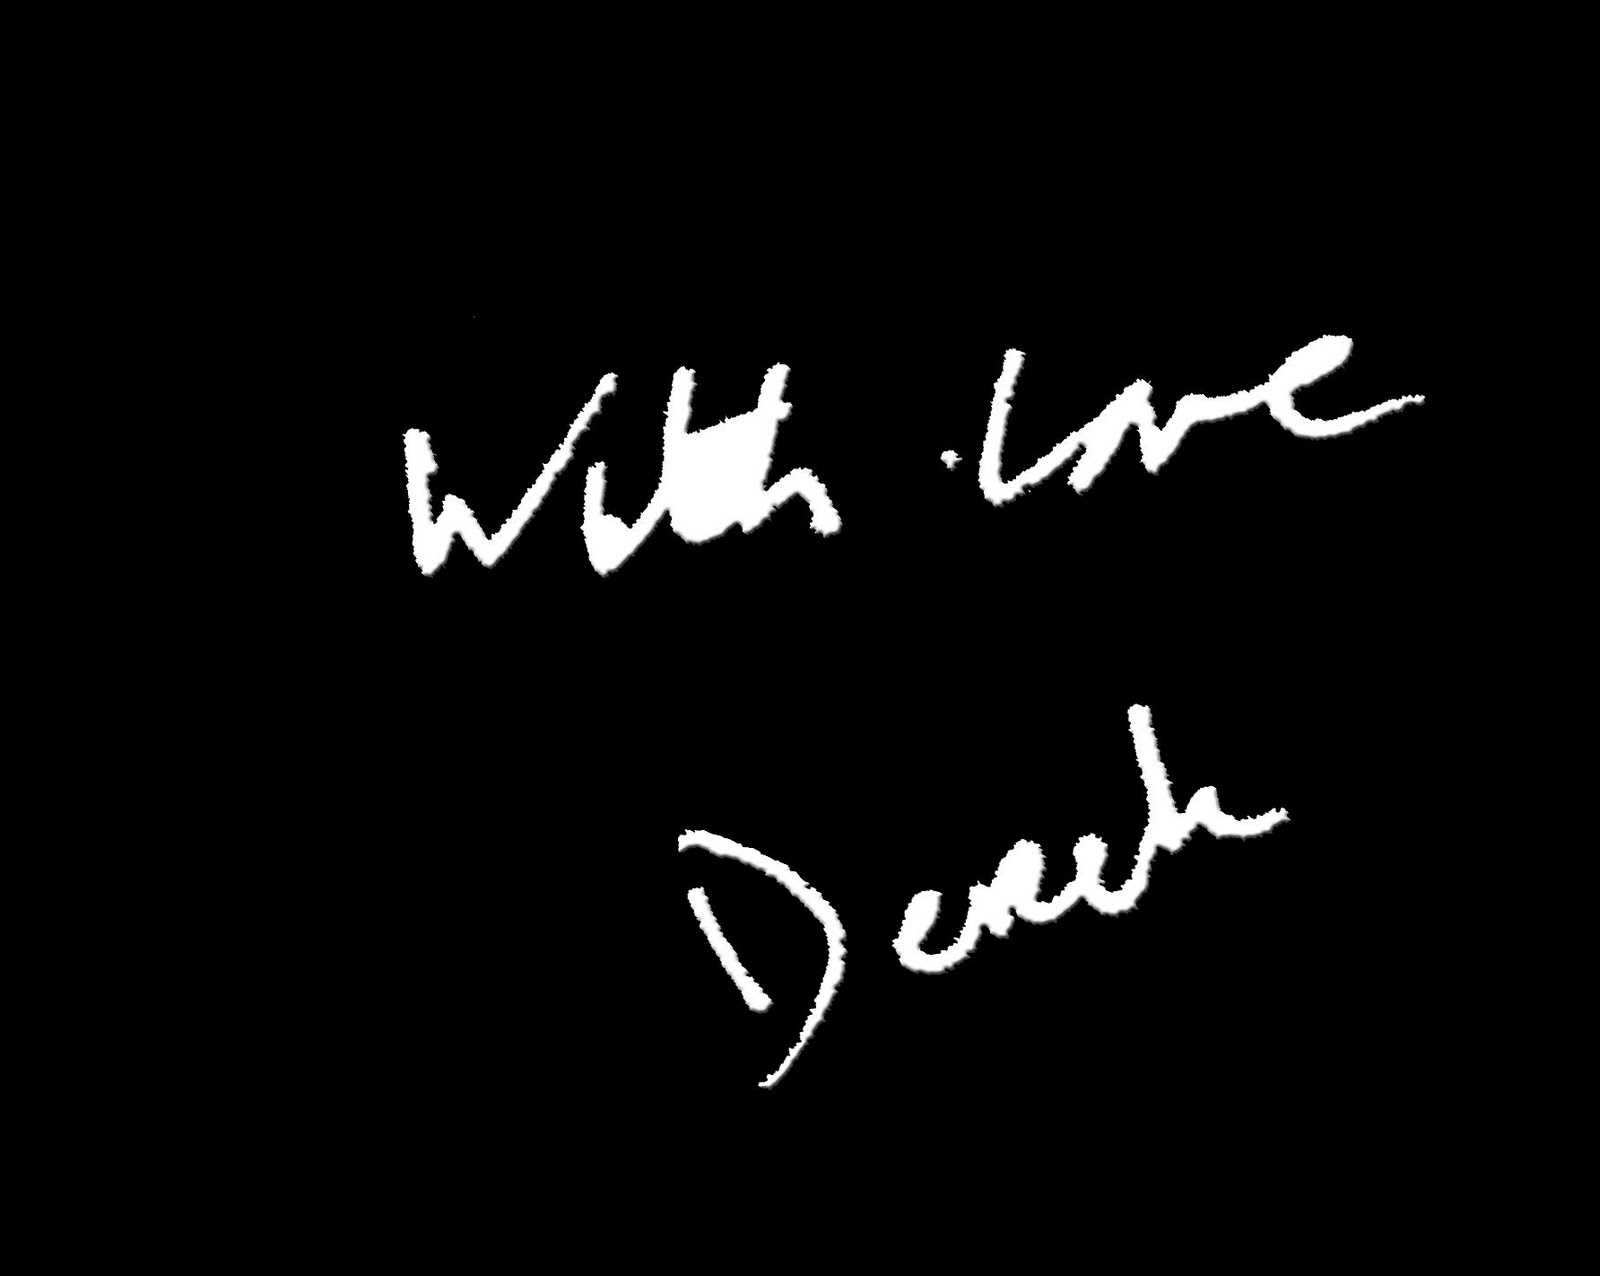 With Love
Derek